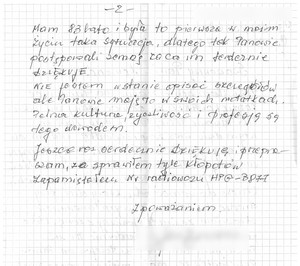 - 2 -
Mam 83 lata i była to pierwsza w moim
życiu taka sytuacja, dlatego tak Panowie
postąpowali
serdecznie
dziękuję.
Nie jestem w stanie opisać szczegółów
ale Panowie mają to w swoich notatkach.
Pełna kultura, życzliwość i profesja są
tego dowodem.
Jeszcze raz serdecznie dziękuję i przepra-
szam, że sprawiłem tyle kłopotów
Zapamiętałem Nr radiowozu HPG-
Z poważaniem